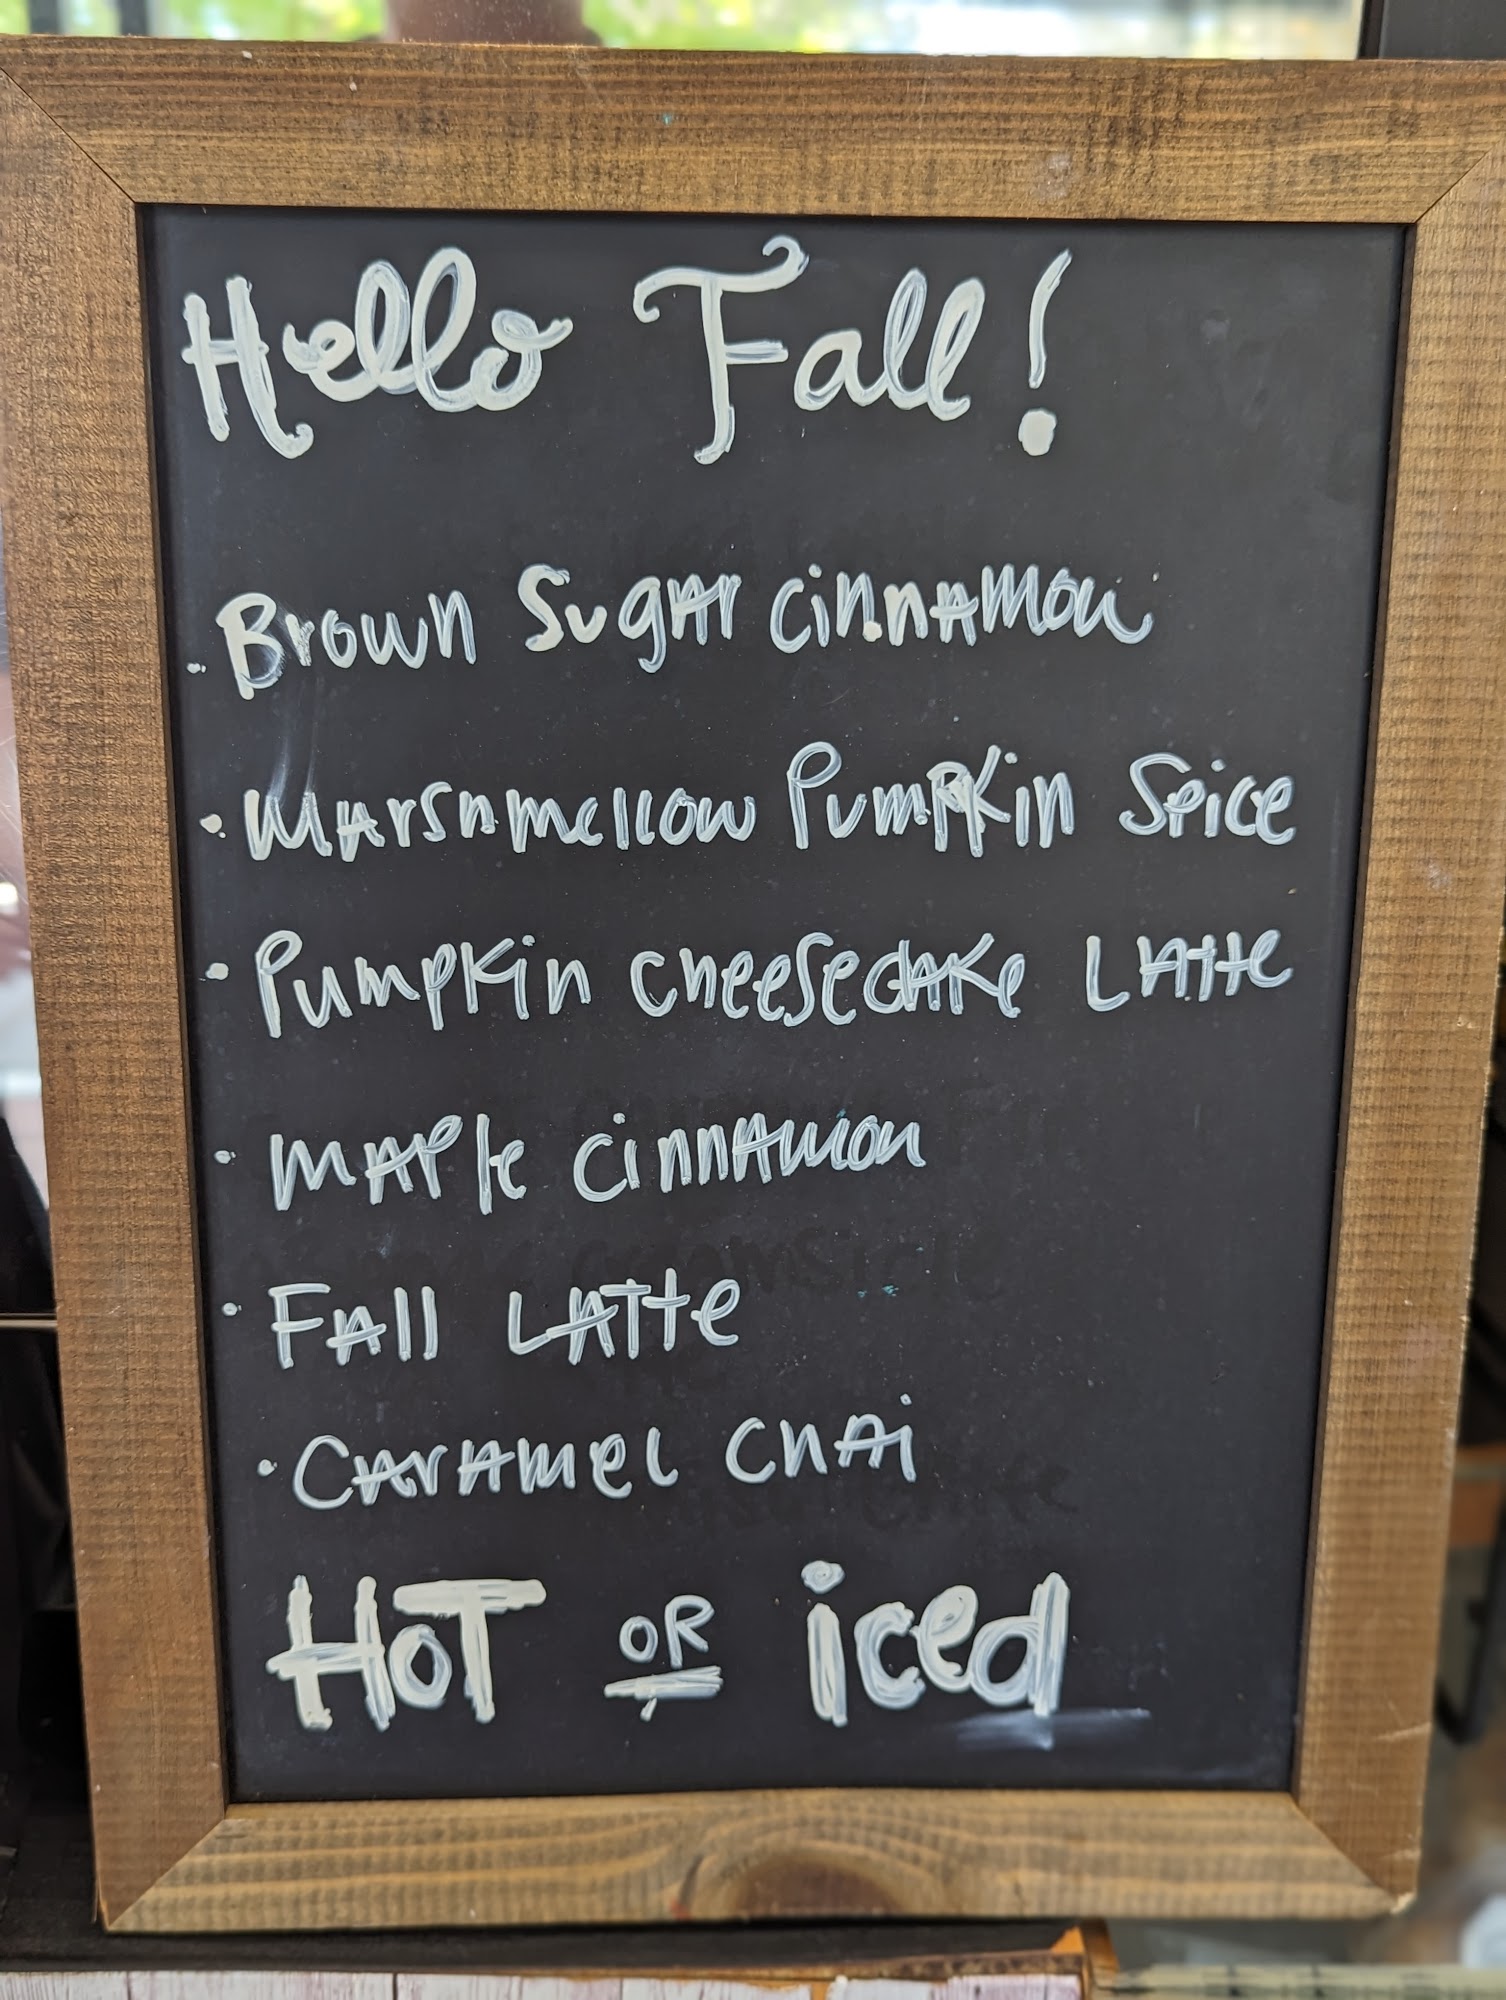 Hello Fall!
· Brown Sugar cinnamon
· Marshmellow Pumpkin Spice
· Pumpkin cheesecake Latte
· Maple cinnamon
· Fall Latte
· Caramel Chai
HOT OR iced